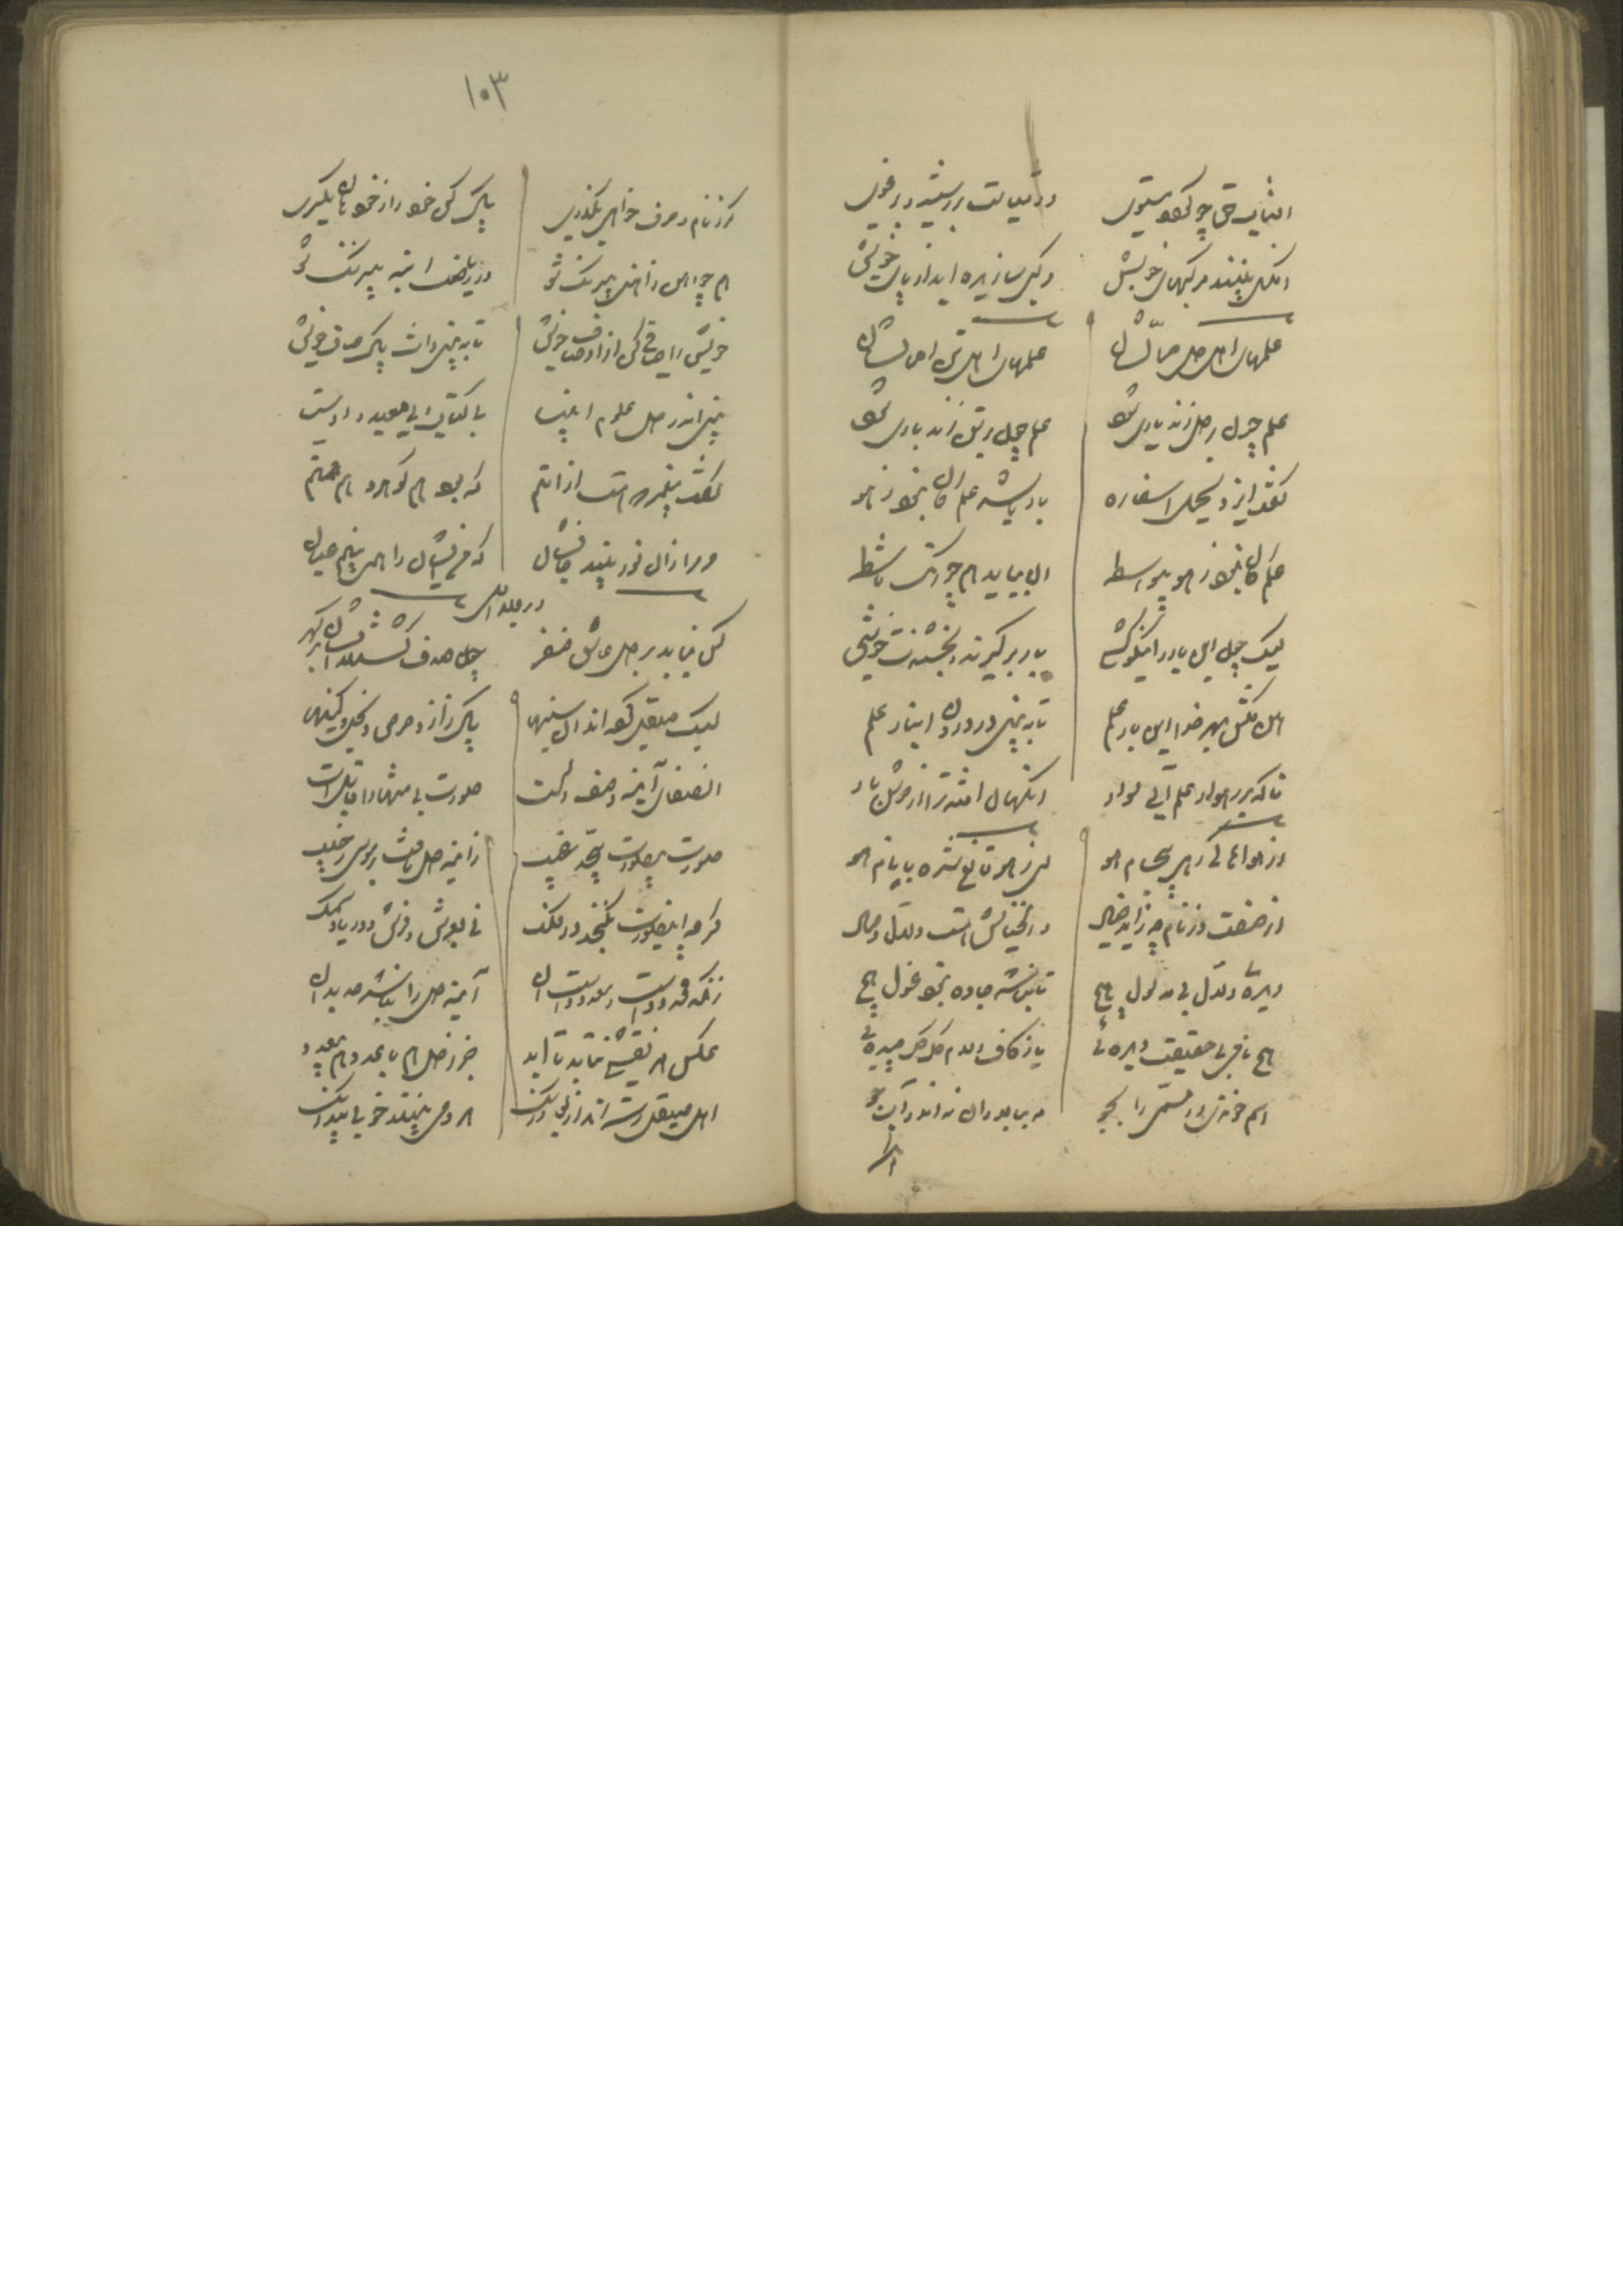 افتاب حق چو کهو ستوی در میانت بر رسیده بر غوی
انکس بیند مرکبهای خویش دیگر سازیده اید از پای خویش
علمهای اهل دل حمالشان علمهای اهل تن احمالشان
علم چون بر دل زند یاری شود علم چون بر تن زند باری شود
گفت ایزد یحمل اسفاره بار باشد علم کان نبود ز هو
علم کان نبود ز هو بیواسطه ان بیاید هم چو رنگ ماشطه
لیک چون این بار را نیکو کشی بار بر گیرند و بخشندت خوشی
هین مکش بهر خدا این بار علم تا به بینی در درون انبار علم
تا که بر رهوار علم آئی سوار انگهان افتد ترا از دوش بار
از هواها کی رهی بیجام هو ای ز هو قانع شده با نام هو
از صفت وز نام چه زاید خیال و ان خیالش هست دلال وصال
دیدهٔ دلال بی مدلول هیچ تا نباشد جاده نبود غول هیچ
هیچ نامی بی حقیقت دیدهٔ یا ز کاف و لام گل گل چیدهٔ
اسم خوندی رو مسمی را بجو مه ببالا دان نه اندر آب جو
۱۰۳
گر ز نام و حرف خواهی بگذری پاک کن خود را ز خود هان یکسری
هم چو اهن ز اهنی بیرنک شو در ریاضت اینه بیرنک شو
خویش را صافی کن از اوصاف خویش تا به بینی ذات پاک صاف خویش
بینی اندر دل علوم انبیا بی کتاب و بی معید و اوستا
گفت پیغمبر که هست از امتم که بود هم گوهر و هم همتم
مر مرا زان نور بیند جانشان که من ایشان را همی بینم بدان
لیک صیقل کرده اند ان سینها پاک ز از و حرص و بخل و کینها
ان صفای آینه وصف دلست صورت بی منتها را قابلست
صورت بیصورت بیحد غیب ز اینه دل تافت بر موسی ز جیب
گرچه این صورت نگنجد در فلک نی بعرش و فرش و دریا و سمک
زانکه محدودست و معدودست ان آینه دل را نباشد حد بدان
عکس هر نقشی نتابد تا ابد جز ز دل هم با عدد هم بی عدد
اهل صیقل رسته اند از بوی و رنک هر دمی بینند خوبی بیدرنک